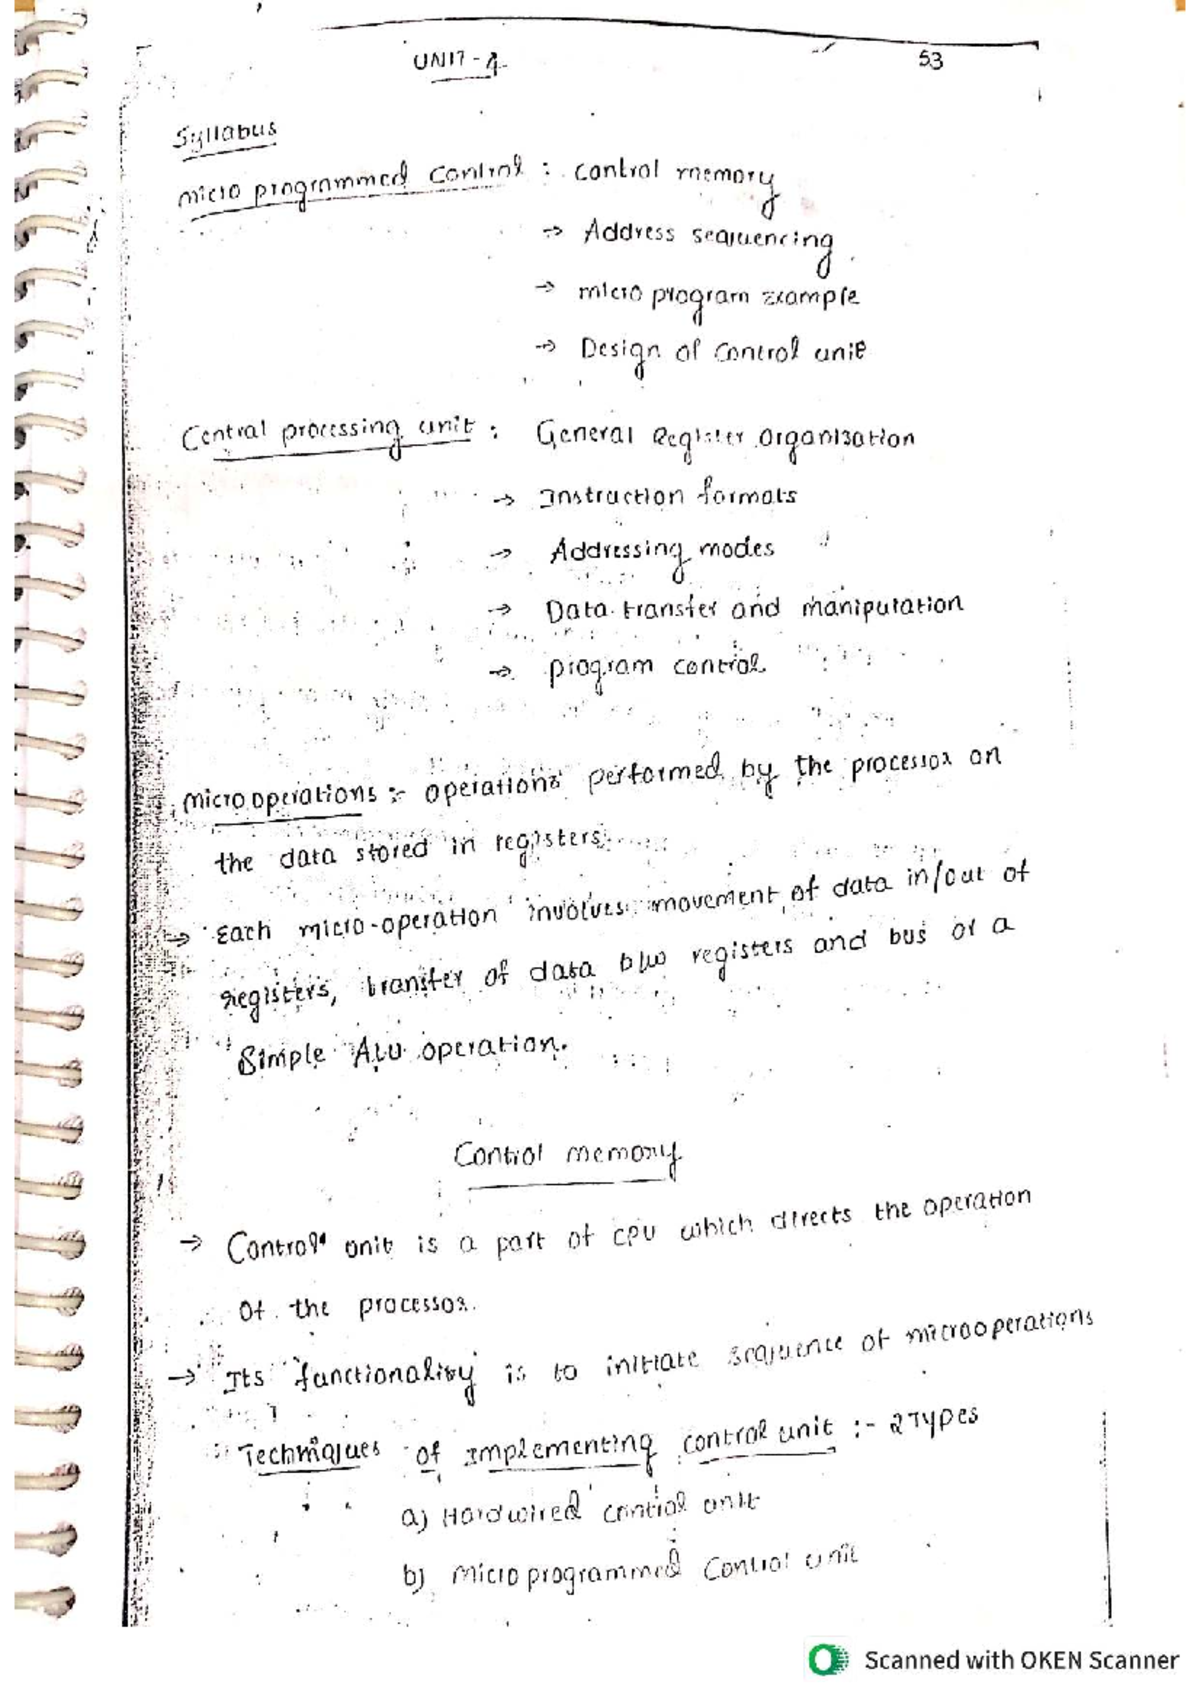 UNIT-4
53
Syllabus
micro programmed control : control memory
→ Address sequencing
→ micro program Example
→ Design of control unit
Central processing unit : General Register organisation
→ Instruction formats
→ Addressing modes
→ Data transfer and manipulation
→ program control
microoperations :- operations performed by the processor on
the data stored in registers.
→ Each micro-operation involves movement of data in/out of
registers, transfer of data b/w registers and bus or a
Simple ALU operation.
Control memory
→ Control unit is a part of CPU which directs the operation
of the processor.
→ Its functionality is to initiate sequence of microoperations
Techniques of Implementing control unit :- 2 Types
a) Hardwired control unit
b) micro programmed Control unit
Scanned with OKEN Scanner